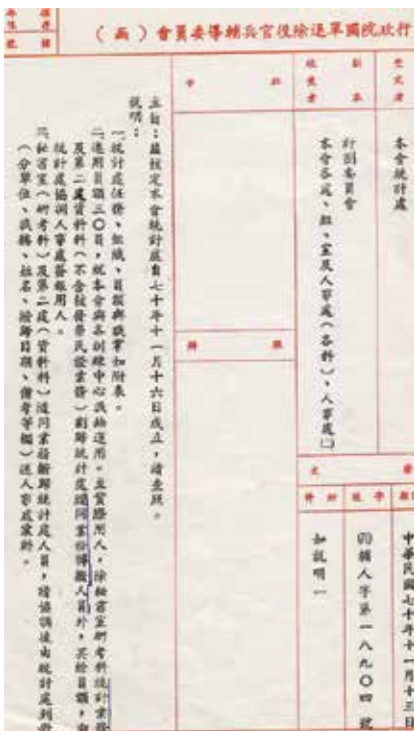 行政院國軍退除役官兵輔導委員會（函）
受文者
本會統計處
副本
收受者
計劃委員會
本會各處、組、室及人事處（各科）、人事處㈡
批示
擬辦
發文
附件
字號
如說明一
輔人字第一八九〇四號
中華民國七十年十一月十三日
主旨：茲核定本會統計處自七十年十一月十六日成立，請查照。
說明：
一、統計處任務、組織、員額與職掌如附表。
二、進用員額三〇員，就本會與各訓練中心派抽運用。並實際用人，除秘書室研考科統計業務
及第二處資料科（不含核發榮民證業務）劃歸統計處隨同業務移撥人員外，其餘員額，由
統計處協調人事處簽報用人。
三、秘書室（研考科）及第二處（資料科）隨同業務歸統計處人員，請協調後由統計處列冊
（分單位、職稱、姓名、撥歸日期、備考等欄）送人事處彙辦。